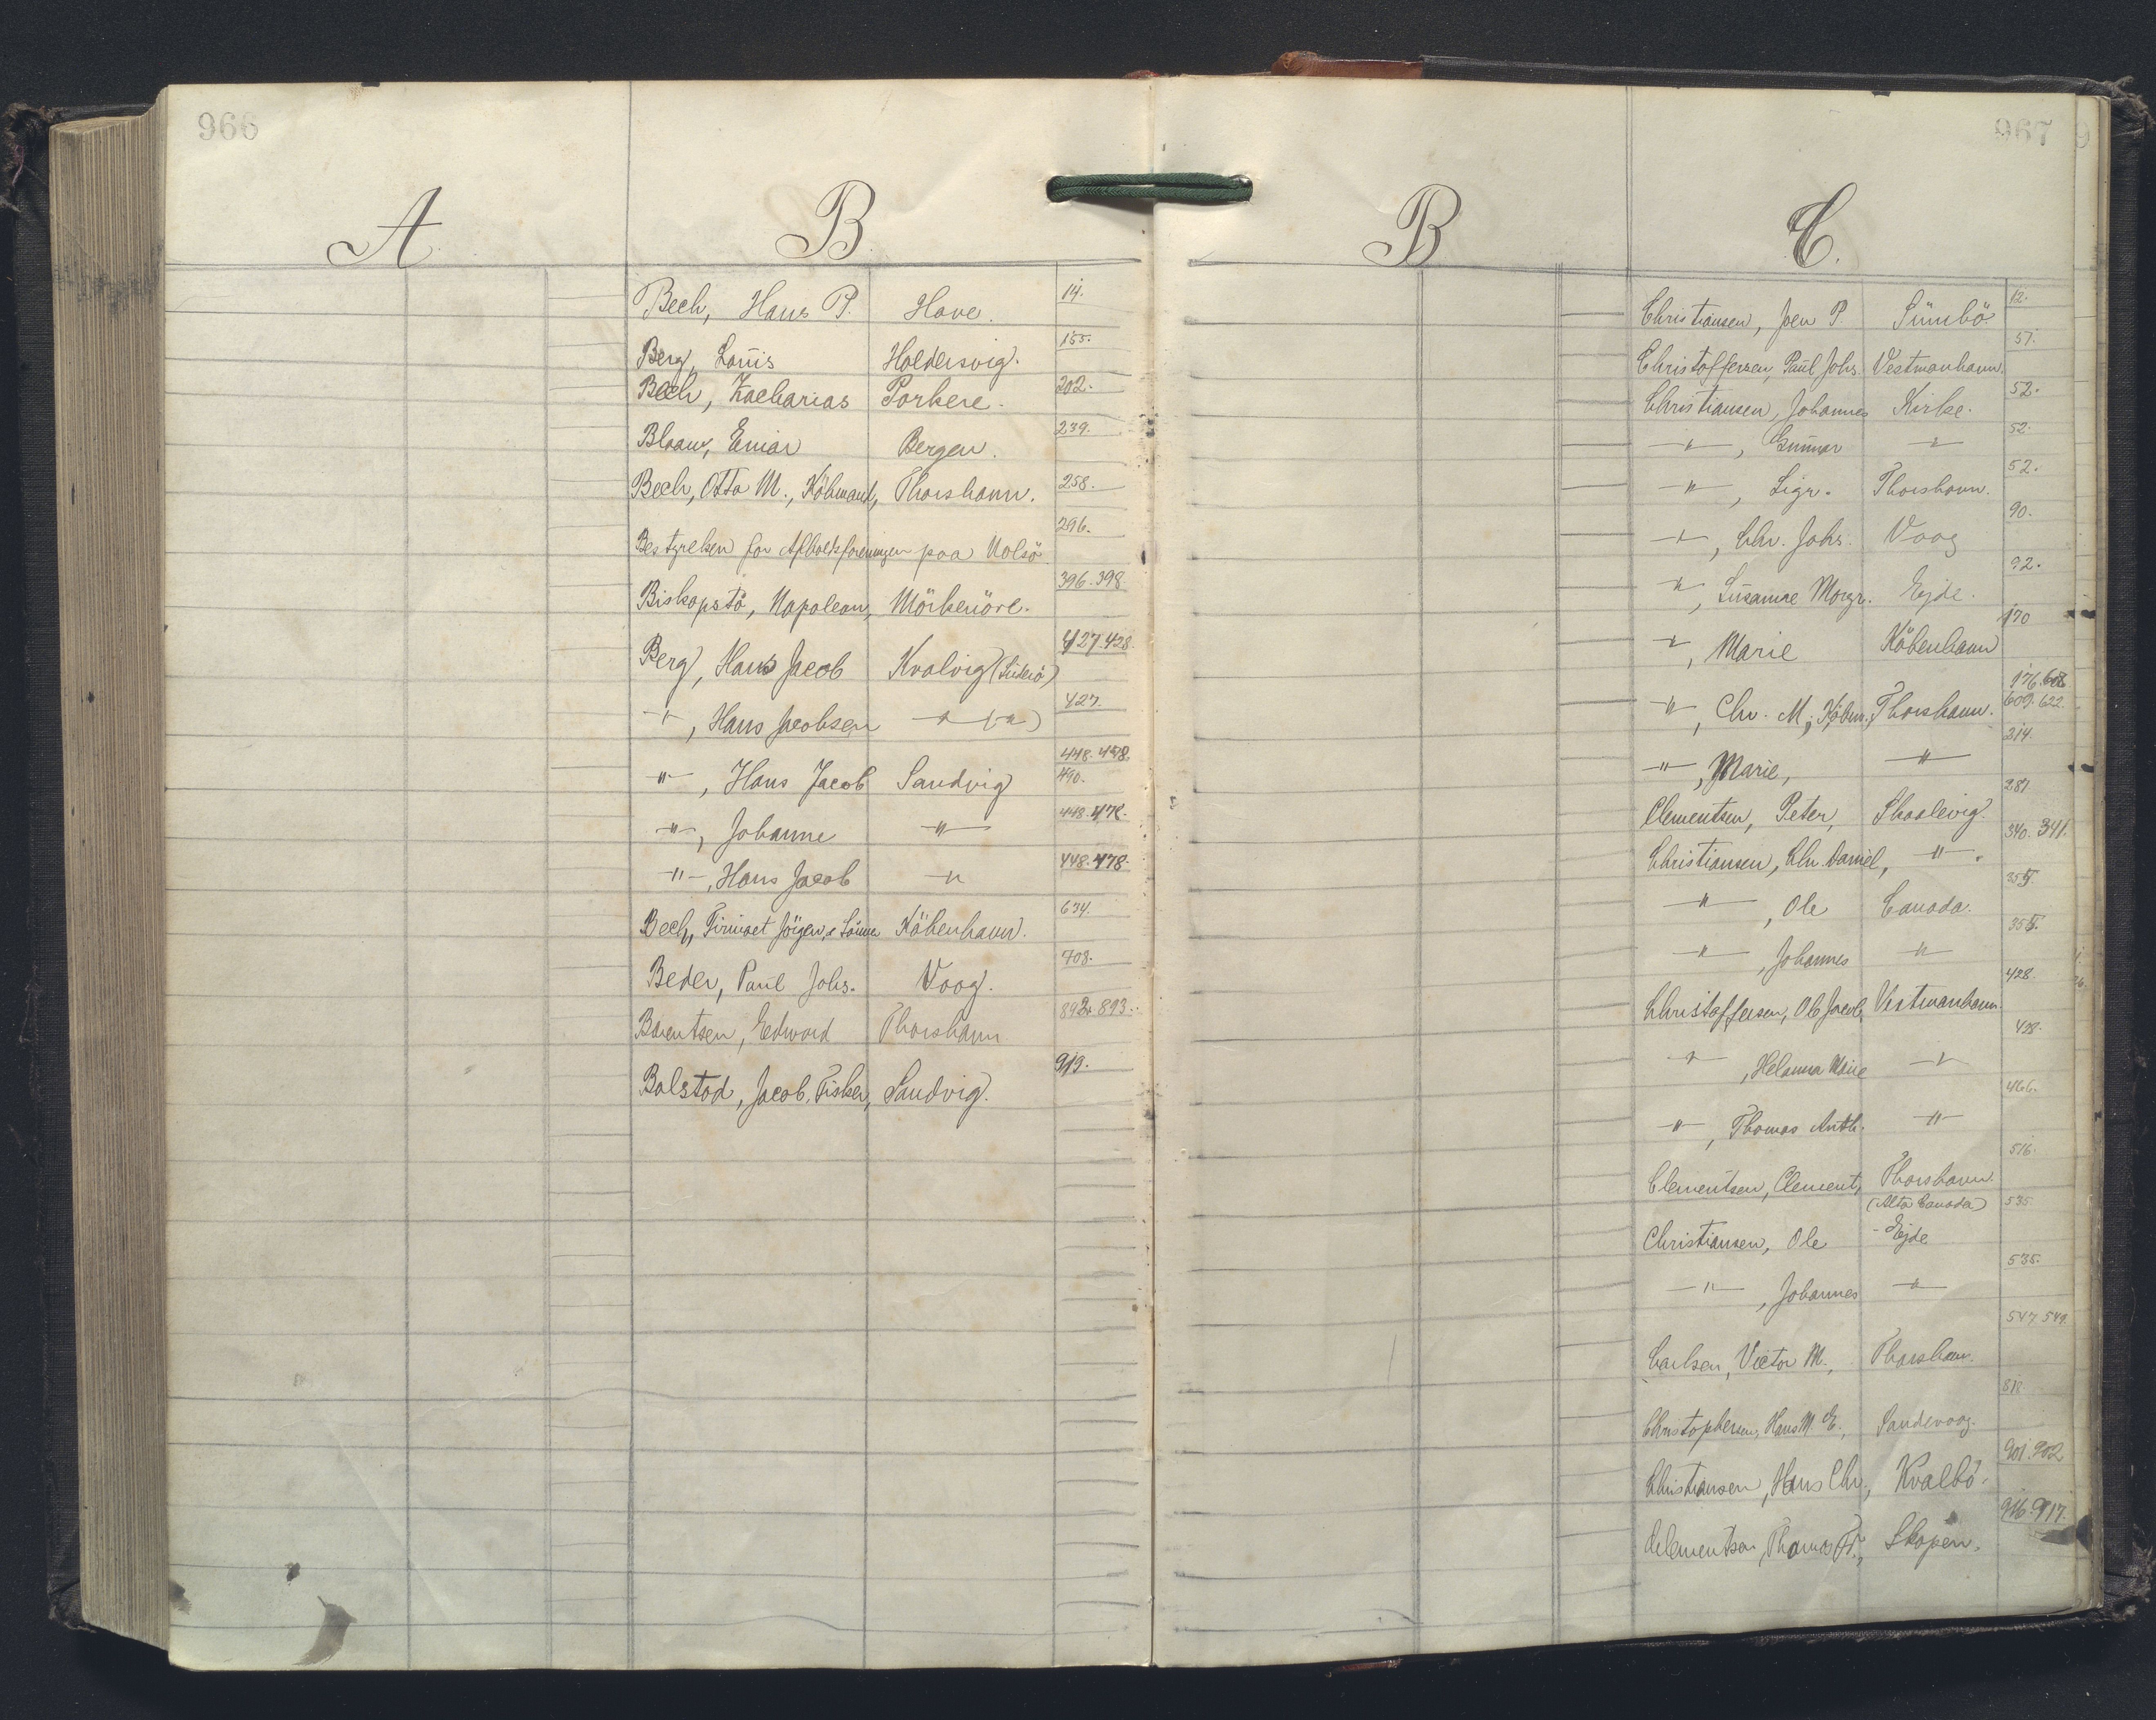 966
A
B.
Bech, Hans P. Hove. 14.
Berg, Louis Holdersvig. 155.
Bech, Zacharias Porkere. 202.
Blaauw, Einar Bergen. 239.
Bech, Otto M., Köbmand, Thorshavn. 258.
Bestyrelsen for Afholdsforeningen paa Nolsö 296.
Biskopstö, Napoleon, Mörkenöre. 396. 398.
Berg, Hans Jacob Kvalvig (Süderö) 427. 428.
-"-, Hans Jacobsen -"- (-"-) 427.
-"-, Hans Jacob Sandvig 448. 458.
490.
-"-, Johanne -"- 448. 478.
-"-, Hans Jacob -"- 448. 478.
Bech, Firmaet Jörgen, & Sönner Köbenhavn. 634.
Beder, Paul Johs. Voog. 708.
Barentsen, Edward Thorshavn 892. 893.
Bolstad, Jacob, Fisker, Sandvig. 919.
967
B
C.
Christiansen, Joen P. Sümbö. 12.
Christoffersen, Paul Johs. Vestmanhavn. 51.
Christiansen, Johannes Kirke. 52.
-"-, Gunnar -"- 52.
-"-, Sigr. Thorshavn. 52.
-"-, Chr. Johs. Voog 90.
-"-, Susanne Margr. Ejde. 92.
-"-, Marie Köbenhavn 170
-"-, Chr. M., Köbm., Thorshavn. 176. 608
609. 622.
-"-, Marie, -"- 214.
Clementsen, Peter, Skaalevig. 281
Christiansen, Chr. Daniel, -"-. 340. 341.
-"-, Ole Canada. 355.
-"-, Johannes -"- 355.
Christoffersen, Ole Jacob, Vestmanhavn. 428.
-"-, Helanna Marie -"- 428.
-"-, Thomas Anth. -"- 466.
Clementsen, Clement, Thorshavn. 516.
(Alta Canada)
Christiansen, Ole - Ejde 535
-"-, Johannes -"- 535.
Carlsen, Victor M., Thorshavn. 547. 549.
Christophersen, Hans M. E., Sandevoog. 818
Christiansen, Hans Chr., Kvalbö. 901. 902
Clementsen, Thomas Fr., Skopen. 916. 917.